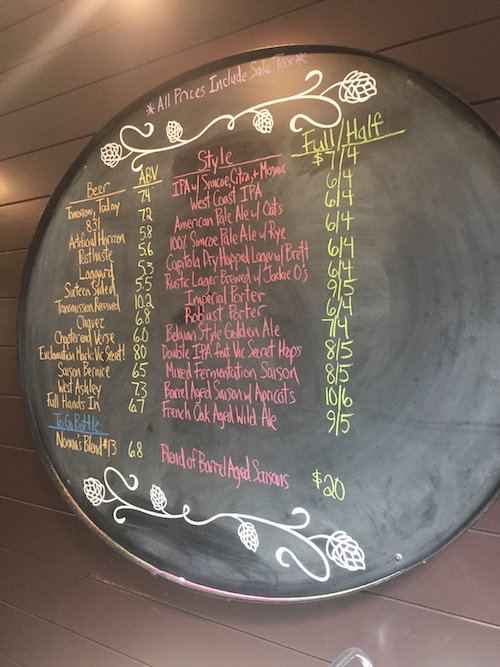 *All Prices Include Sale Tax*
Beer ABV Style Full/Half
Tomorrow, Today 7.4 IPA w/ Simcoe, Citra, + Mosaic $7/4
831 7.2 West Coast IPA 6/4
Artificial Horizon 5.8 American Pale Ale w/ Oats 6/4
Posthaste 5.6 100% Simcoe Pale Ale w/ Rye 6/4
Laggard 5.3 Dry Hopped Lager w/ Brett 6/4
Sixteen Sided 5.5 Rustic Lager Brewed w/ Jackie O's 6/4
Transmission Received 10.2 Imperial Porter 9/5
Chavez 6.8 Robust Porter 6/4
Chapter and Verse 6.0 Belgian Style Golden Ale 7/4
Exclamation Mark: Vic Secret! 8.0 Double IPA feat. Vic Secret Hops 8/5
Saison Bernice 6.5 Mixed Fermentation Saison 8/5
West Ashley 7.3 Barrel Aged Saison w/ Apricots 10/6
Full Hands In 6.7 French Oak Aged Wild Ale 9/5
To Go Bottle:
Nonna's Blend #13 6.8 Blend of Barrel Aged Saisons $20